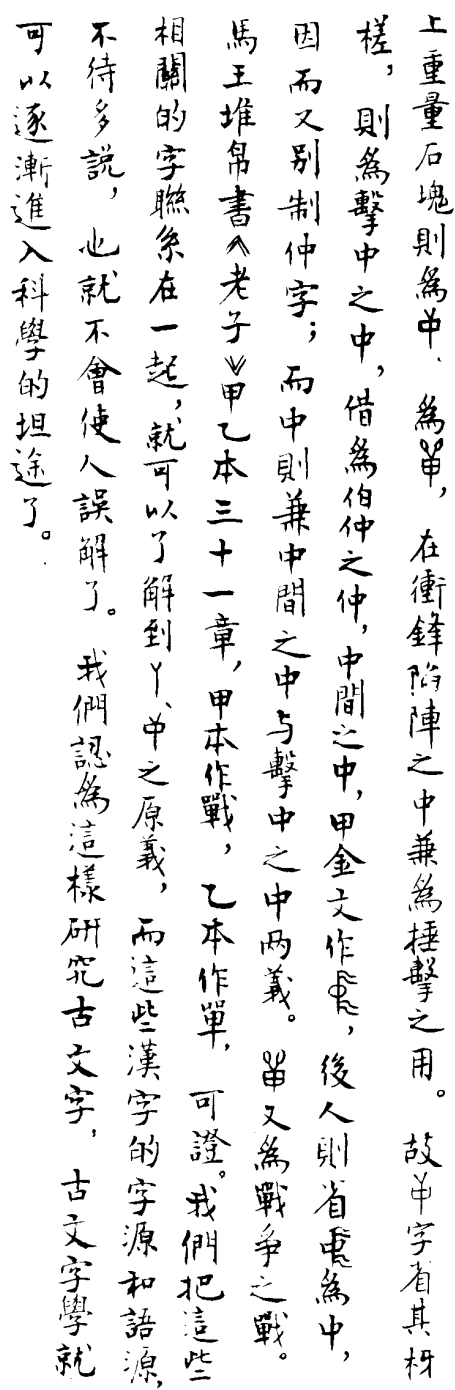 上重量石塊則為𠁩、為單，在衝鋒陷陣之中兼為捶擊之用。故𠁩字省其枒
槎，則為擊中之中，借為伯仲之仲，中間之中，甲金文作，後人則省為中，
因而又別制仲字；而中則兼中間之中与擊中之中两義。單又為戰争之戰。
馬王堆帛書《老子》甲乙本三十一章，甲本作戰，乙本作單，可證。我們把這些
相關的字聯系在一起，就可以了解到丫、𠁩之原義，而這些漢字的字源和語源，
不待多說，也就不會使人誤解了。我們認為這樣研究古文字，古文字學就
可以逐漸進入科學的坦途了。